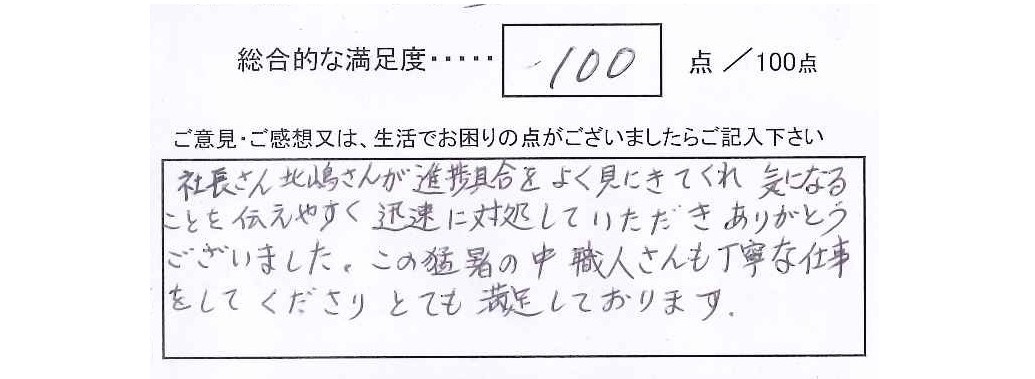 総合的な満足度・・・・・ 100 点 ／100点
ご意見・ご感想又は、生活でお困りの点がございましたらご記入下さい
社長さん 北嶋さんが 進捗具合を よく見にきてくれ 気になる
ことを 伝えやすく 迅速に対処していただき ありがとう
ございました。この猛暑の中 職人さんも丁寧な仕事
をして くださり とても 満足しております.